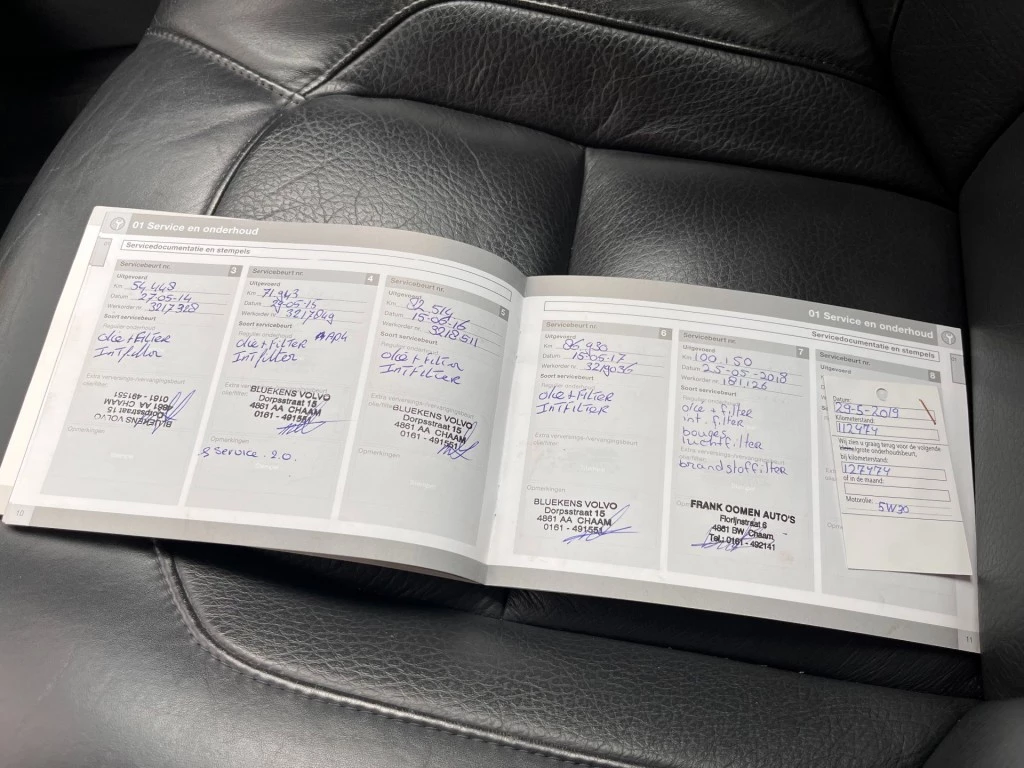 01 Service en onderhoud
Servicedocumentatie en stempels
Servicebeurt nr. 3
Uitgevoerd
Km 54,448
Datum 27-05-14
Werkorder nr. 3217928
Soort servicebeurt
Regulier onderhoud
olie+FilTER
INTfilter
Extra verversings-/vervangingsbeurt
olie/filter:
BLUEKENS VOLVO
Dorpsstraat 15
4861 AA CHAAM
0161 - 491551
Opmerkingen
10
Servicebeurt nr. 4
Uitgevoerd
Km 71.943
Datum 29-05-15
Werkorder nr.
Soort servicebeurt
Regulier onderhoud
olie+FilTER
INTfilter
Extra verversings-/vervangingsbeurt
olie/filter:
BLUEKENS VOLVO
Dorpsstraat 15
4861 AA CHAAM
0161 - 491551
Opmerkingen
Service 2.0.
Servicebeurt nr. 5
Uitgevoerd
Km 82.514
Datum 15-06-16
Werkorder nr. 3218511
Soort servicebeurt
Regulier onderhoud
olie+Filter
INTFilTER
Extra verversings-/vervangingsbeurt
olie/filter:
BLUEKENS VOLVO
Dorpsstraat 15
4861 AA CHAAM
0161 - 491551
Opmerkingen
01 Service en onderhoud
Servicedocumentatie en stempels
Servicebeurt nr. 6
Uitgevoerd
Km 86.930
Datum 15-06-17
Werkorder nr. 3219036
Soort servicebeurt
Regulier onderhoud
olie+FilTER
INTFilTER
Extra verversings-/vervangingsbeurt
olie/filter:
Opmerkingen
BLUEKENS VOLVO
Dorpsstraat 15
4861 AA CHAAM
0161 - 491551
Servicebeurt nr. 7
Uitgevoerd
Km 100.150
Datum 25-05-2018
Werkorder nr. 181.126
Soort servicebeurt
Regulier onderhoud
olie + filter
int. filter
bougies
luchtfilter
Extra verversings-/vervangingsbeurt
brandstoffilter
FRANK OOMEN AUTO'S
Florijnstraat 6
4861 BW Chaam
Tel.: 0161 - 492141
Servicebeurt nr. 8
Uitgevoerd
Datum:
29-5-2019
Kilometerstand:
112474
Wij zien u graag terug voor de volgende
onderhoudsbeurt,
bij kilometerstand:
127474
of in de maand:
Motorolie: 5W30
11